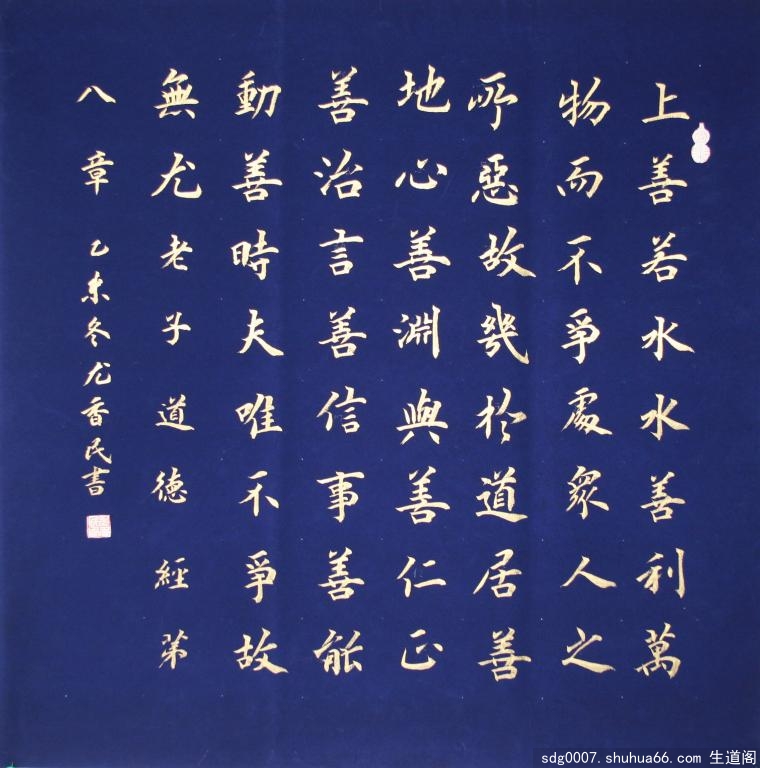 上善若水水善利萬
物而不爭處眾人之
所惡故幾於道居善
地心善淵與善仁正
善治言善信事善能
動善時夫唯不爭故
無尤老子道德經第
八章 乙未冬尤香民書
sdg0007.shuhua66.com 生道阁